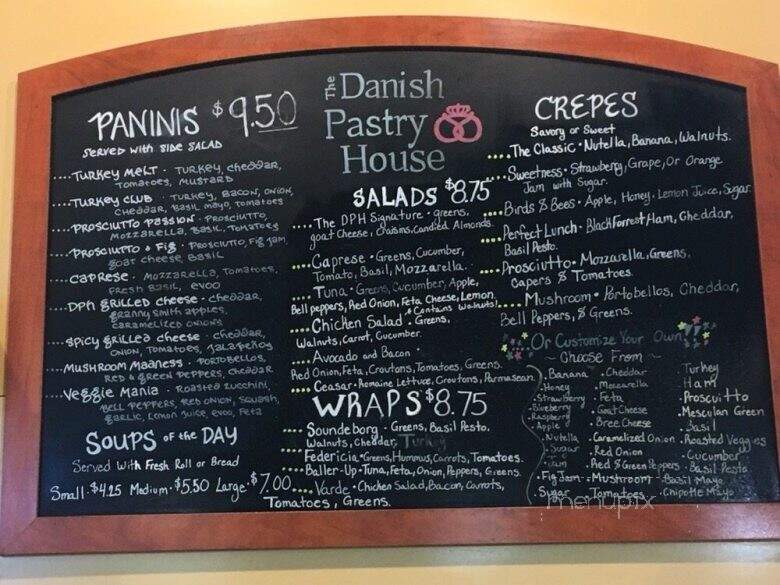 The Danish
Pastry
House
PANINIS $9.50
SERVED WITH SIDE SALAD
....TURKEY MELT · TURKEY, CHEDDAR,
TOMATOES, MUSTARD
....TURKEY CLUB · TURKEY, BACON, ONION,
CHEDDAR, BASIL MAYO, TOMATOES
....PROSCIUTTO PASSION · PROSCIUTTO,
MOZZARELLA, BASIL, TOMATOES
....PROSCIUTTO & FIG · PROSCIUTTO, FIG JAM,
GOAT CHEESE, BASIL
....CAPRESE · MOZZARELLA, TOMATOES,
FRESH BASIL, EVOO
....DPH GRILLED CHEESE · CHEDDAR,
GRANNY SMITH APPLES,
CARAMELIZED ONIONS
....SPICY GRILLED CHEESE · CHEDDAR,
ONION, TOMATOES, JALAPEÑOS
....MUSHROOM MADNESS · PORTOBELLOS,
RED & GREEN PEPPERS, CHEDDAR
....VEGGIE MANIA · ROASTED ZUCCHINI,
BELL PEPPERS, RED ONION, SQUASH,
GARLIC, LEMON JUICE, EVOO, FETA
SOUPS OF THE DAY
Served With Fresh Roll or Bread
Small · $4.25 Medium · $5.50 Large · $7.00
SALADS $8.75
....The DPH Signature · Greens,
goat Cheese, Craisins, Candied Almonds.
....Caprese · Greens, Cucumber,
Tomato, Basil, Mozzarella.
....Tuna · Greens, Cucumber, Apple,
Bell peppers, Red Onion, Feta Cheese, Lemon
*Contains Walnuts
....Chicken Salad · Greens,
Walnuts, Carrot, Cucumber.
....Avocado and Bacon ·
Red Onion, Feta, Croutons, Tomatoes, Greens.
....Ceasar · Romaine Lettuce, Croutons, Parmasean
WRAPS $8.75
....Soundeborg · Greens, Basil Pesto.
Walnuts, Cheddar, Turkey
....Federicia · Greens, Hummus, Carrots, Tomatoes.
....Baller-Up · Tuna, Feta, Onion, Peppers, Greens.
....Varde · Chicken Salad, Bacon, Carrots,
Tomatoes, Greens.
CREPES
Savory or Sweet
....The Classic · Nutella, Banana, Walnuts.
....Sweetness · Strawberry, Grape, Or Orange
Jam with Sugar.
....Birds & Bees · Apple, Honey, Lemon Juice, Sugar
....Perfect Lunch · Black Forrest Ham, Cheddar,
Basil Pesto.
....Prosciutto · Mozzarella, Greens,
Capers & Tomatoes.
....Mushroom · Portobellos, Cheddar,
Bell Peppers, & Greens.
...Or Customize Your Own
~ Choose From ~
· Banana
· Honey
· Strawberry
· Blueberry
· Raspberry
· Apple
· Nutella
· Sugar
· Jam
· Fig Jam
· Sugar
· Cheddar
· Mozzarella
· Feta
· Goat Cheese
· Bree Cheese
· Caramelized Onion
· Red Onion
· Red & Green Peppers
· Mushroom
· Tomatoes
· Turkey
· Ham
· Proscuitto
· Mesculan Green
· Basil
· Roasted Veggies
· Cucumber
· Basil Pesto
· Basil Mayo
· Chipotle Mayo
menupix